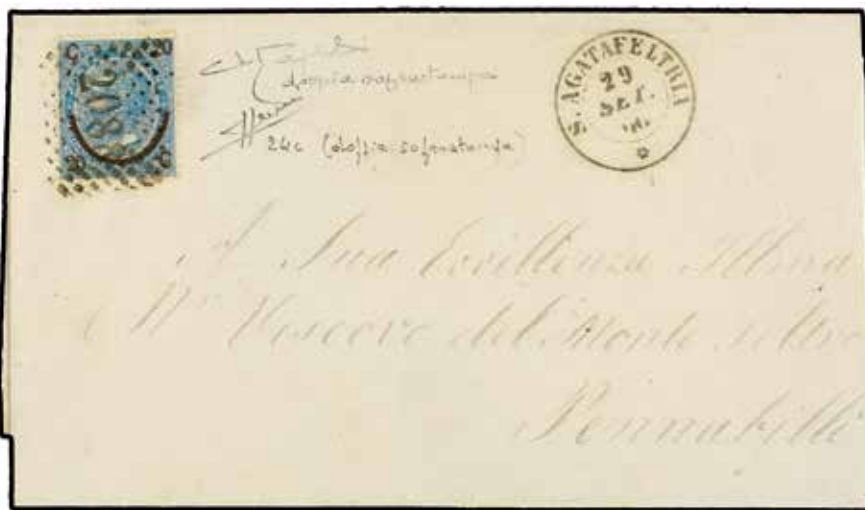 C 20
208
20 C
doppia soprastampa
24c (doppia soprastampa)
S. AGATAFELTRIA
29
SET.
66
A Sua Eccellenza Illma
Vescovo del Monte Feltro
Pennabilli